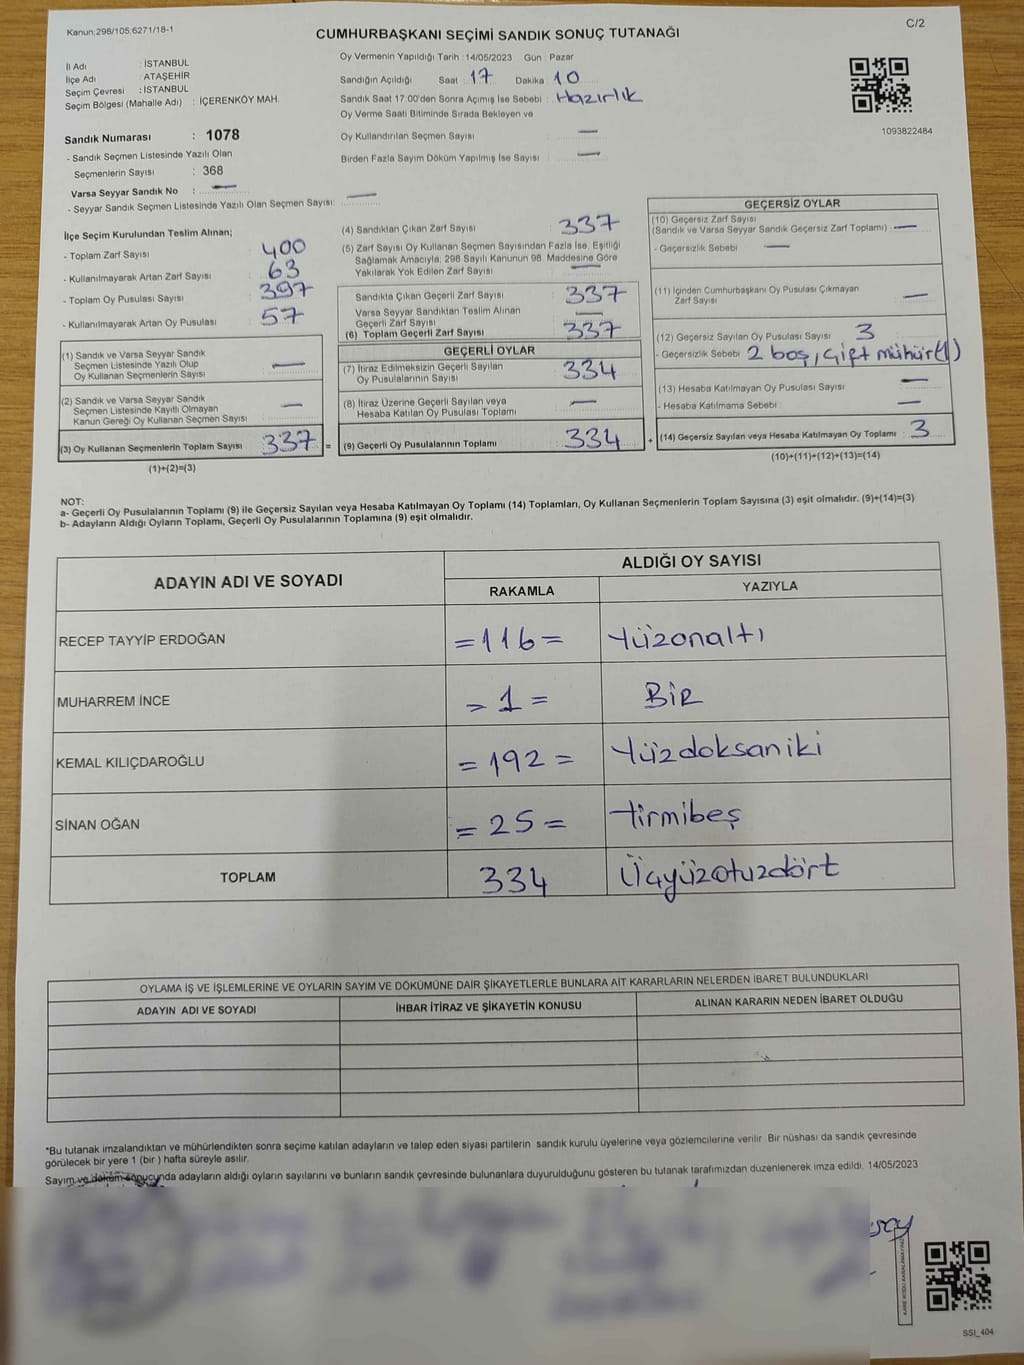 Kanun;298/105;6271/18-1
C/2
CUMHURBAŞKANI SEÇİMİ SANDIK SONUÇ TUTANAĞI
İl Adı : İSTANBUL
İlçe Adı : ATAŞEHİR
Seçim Çevresi : İSTANBUL
Seçim Bölgesi (Mahalle Adı) : İÇERENKÖY MAH.
Sandık Numarası : 1078
- Sandık Seçmen Listesinde Yazılı Olan
Seçmenlerin Sayısı : 368
Varsa Seyyar Sandık No : —
- Seyyar Sandık Seçmen Listesinde Yazılı Olan Seçmen Sayısı: —
Oy Vermenin Yapıldığı Tarih : 14/05/2023 Gün : Pazar
Sandığın Açıldığı Saat : 17 Dakika 10
Sandık Saat 17:00'den Sonra Açımış İse Sebebi : Hazırlık
Oy Verme Saati Bitiminde Sırada Bekleyen ve
Oy Kullandırılan Seçmen Sayısı —
Birden Fazla Sayım Döküm Yapılmış İse Sayısı —
1093822484
İlçe Seçim Kurulundan Teslim Alınan;
- Toplam Zarf Sayısı 400
- Kullanılmayarak Artan Zarf Sayısı 63
- Toplam Oy Pusulası Sayısı 397
- Kullanılmayarak Artan Oy Pusulası 57
(1) Sandık ve Varsa Seyyar Sandık
Seçmen Listesinde Yazılı Olup
Oy Kullanan Seçmenlerin Sayısı —
(2) Sandık ve Varsa Seyyar Sandık
Seçmen Listesinde Kayıtlı Olmayan
Kanun Gereği Oy Kullanan Seçmen Sayısı —
(3) Oy Kullanan Seçmenlerin Toplam Sayısı 337 =
(1)+(2)=(3)
(4) Sandıktan Çıkan Zarf Sayısı 337
(5) Zarf Sayısı Oy Kullanan Seçmen Sayısından Fazla İse, Eşitliği
Sağlamak Amacıyla; 298 Sayılı Kanunun 98. Maddesine Göre
Yakılarak Yok Edilen Zarf Sayısı —
Sandıkta Çıkan Geçerli Zarf Sayısı 337
Varsa Seyyar Sandıktan Teslim Alınan
Geçerli Zarf Sayısı —
(6) Toplam Geçerli Zarf Sayısı 337
GEÇERLİ OYLAR
(7) İtiraz Edilmeksizin Geçerli Sayılan
Oy Pusulalarının Sayısı 334
(8) İtiraz Üzerine Geçerli Sayılan veya
Hesaba Katılan Oy Pusulası Toplamı —
(9) Geçerli Oy Pusulalarının Toplamı 334 +
GEÇERSİZ OYLAR
(10) Geçersiz Zarf Sayısı
(Sandık ve Varsa Seyyar Sandık Geçersiz Zarf Toplamı) —
- Geçersizlik Sebebi —
(11) İçinden Cumhurbaşkanı Oy Pusulası Çıkmayan
Zarf Sayısı —
(12) Geçersiz Sayılan Oy Pusulası Sayısı 3
- Geçersizlik Sebebi 2 boş, çift mühür(1)
(13) Hesaba Katılmayan Oy Pusulası Sayısı —
- Hesaba Katılmama Sebebi —
(14) Geçersiz Sayılan veya Hesaba Katılmayan Oy Toplamı : 3
(10)+(11)+(12)+(13)=(14)
NOT:
a- Geçerli Oy Pusulalarının Toplamı (9) ile Geçersiz Sayılan veya Hesaba Katılmayan Oy Toplamı (14) Toplamları, Oy Kullanan Seçmenlerin Toplam Sayısına (3) eşit olmalıdır. (9)+(14)=(3)
b- Adayların Aldığı Oyların Toplamı, Geçerli Oy Pusulalarının Toplamına (9) eşit olmalıdır.
ADAYIN ADI VE SOYADI
ALDIĞI OY SAYISI
RAKAMLA YAZIYLA
RECEP TAYYİP ERDOĞAN =116= Yüzonaltı
MUHARREM İNCE =1= BİR
KEMAL KILIÇDAROĞLU =192= Yüzdoksaniki
SİNAN OĞAN =25= Yirmibeş
TOPLAM 334 Üçyüzotuzdört
OYLAMA İŞ VE İŞLEMLERİNE VE OYLARIN SAYIM VE DÖKÜMÜNE DAİR ŞİKAYETLERLE BUNLARA AİT KARARLARIN NELERDEN İBARET BULUNDUKLARI
ADAYIN ADI VE SOYADI İHBAR İTİRAZ VE ŞİKAYETİN KONUSU ALINAN KARARIN NEDEN İBARET OLDUĞU
*Bu tutanak imzalandıktan ve mühürlendikten sonra seçime katılan adayların ve talep eden siyasi partilerin sandık kurulu üyelerine veya gözlemcilerine verilir. Bir nüshası da sandık çevresinde
görülecek bir yere 1 (bir) hafta süreyle asılır.
Sayım ve döküm sonucunda adayların aldığı oyların sayılarını ve bunların sandık çevresinde bulunanlara duyurulduğunu gösteren bu tutanak tarafımızdan düzenlenerek imza edildi. 14/05/2023
SSI_404